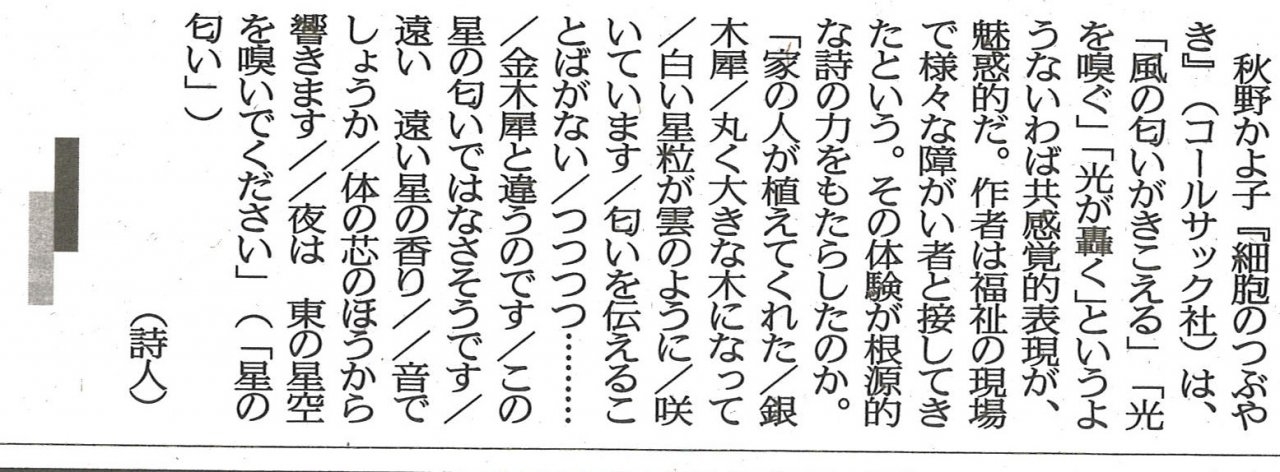 秋野かよ子『細胞のつぶや
き』（コールサック社）は、
「風の匂いがきこえる」「光
を嗅ぐ」「光が轟く」というよ
うないわば共感覚的表現が、
魅惑的だ。作者は福祉の現場
で様々な障がい者と接してき
たという。その体験が根源的
な詩の力をもたらしたのか。
「家の人が植えてくれた／銀
木犀／丸く大きな木になって
／白い星粒が雲のように／咲
いています／匂いを伝えるこ
とばがない／つつつつ…………
／金木犀と違うのです／この
星の匂いではなさそうです／
遠い　遠い星の香り／／音で
しょうか／体の芯のほうから
響きます／／夜は　東の星空
を嗅いでください」（「星の
匂い」）
（詩人）